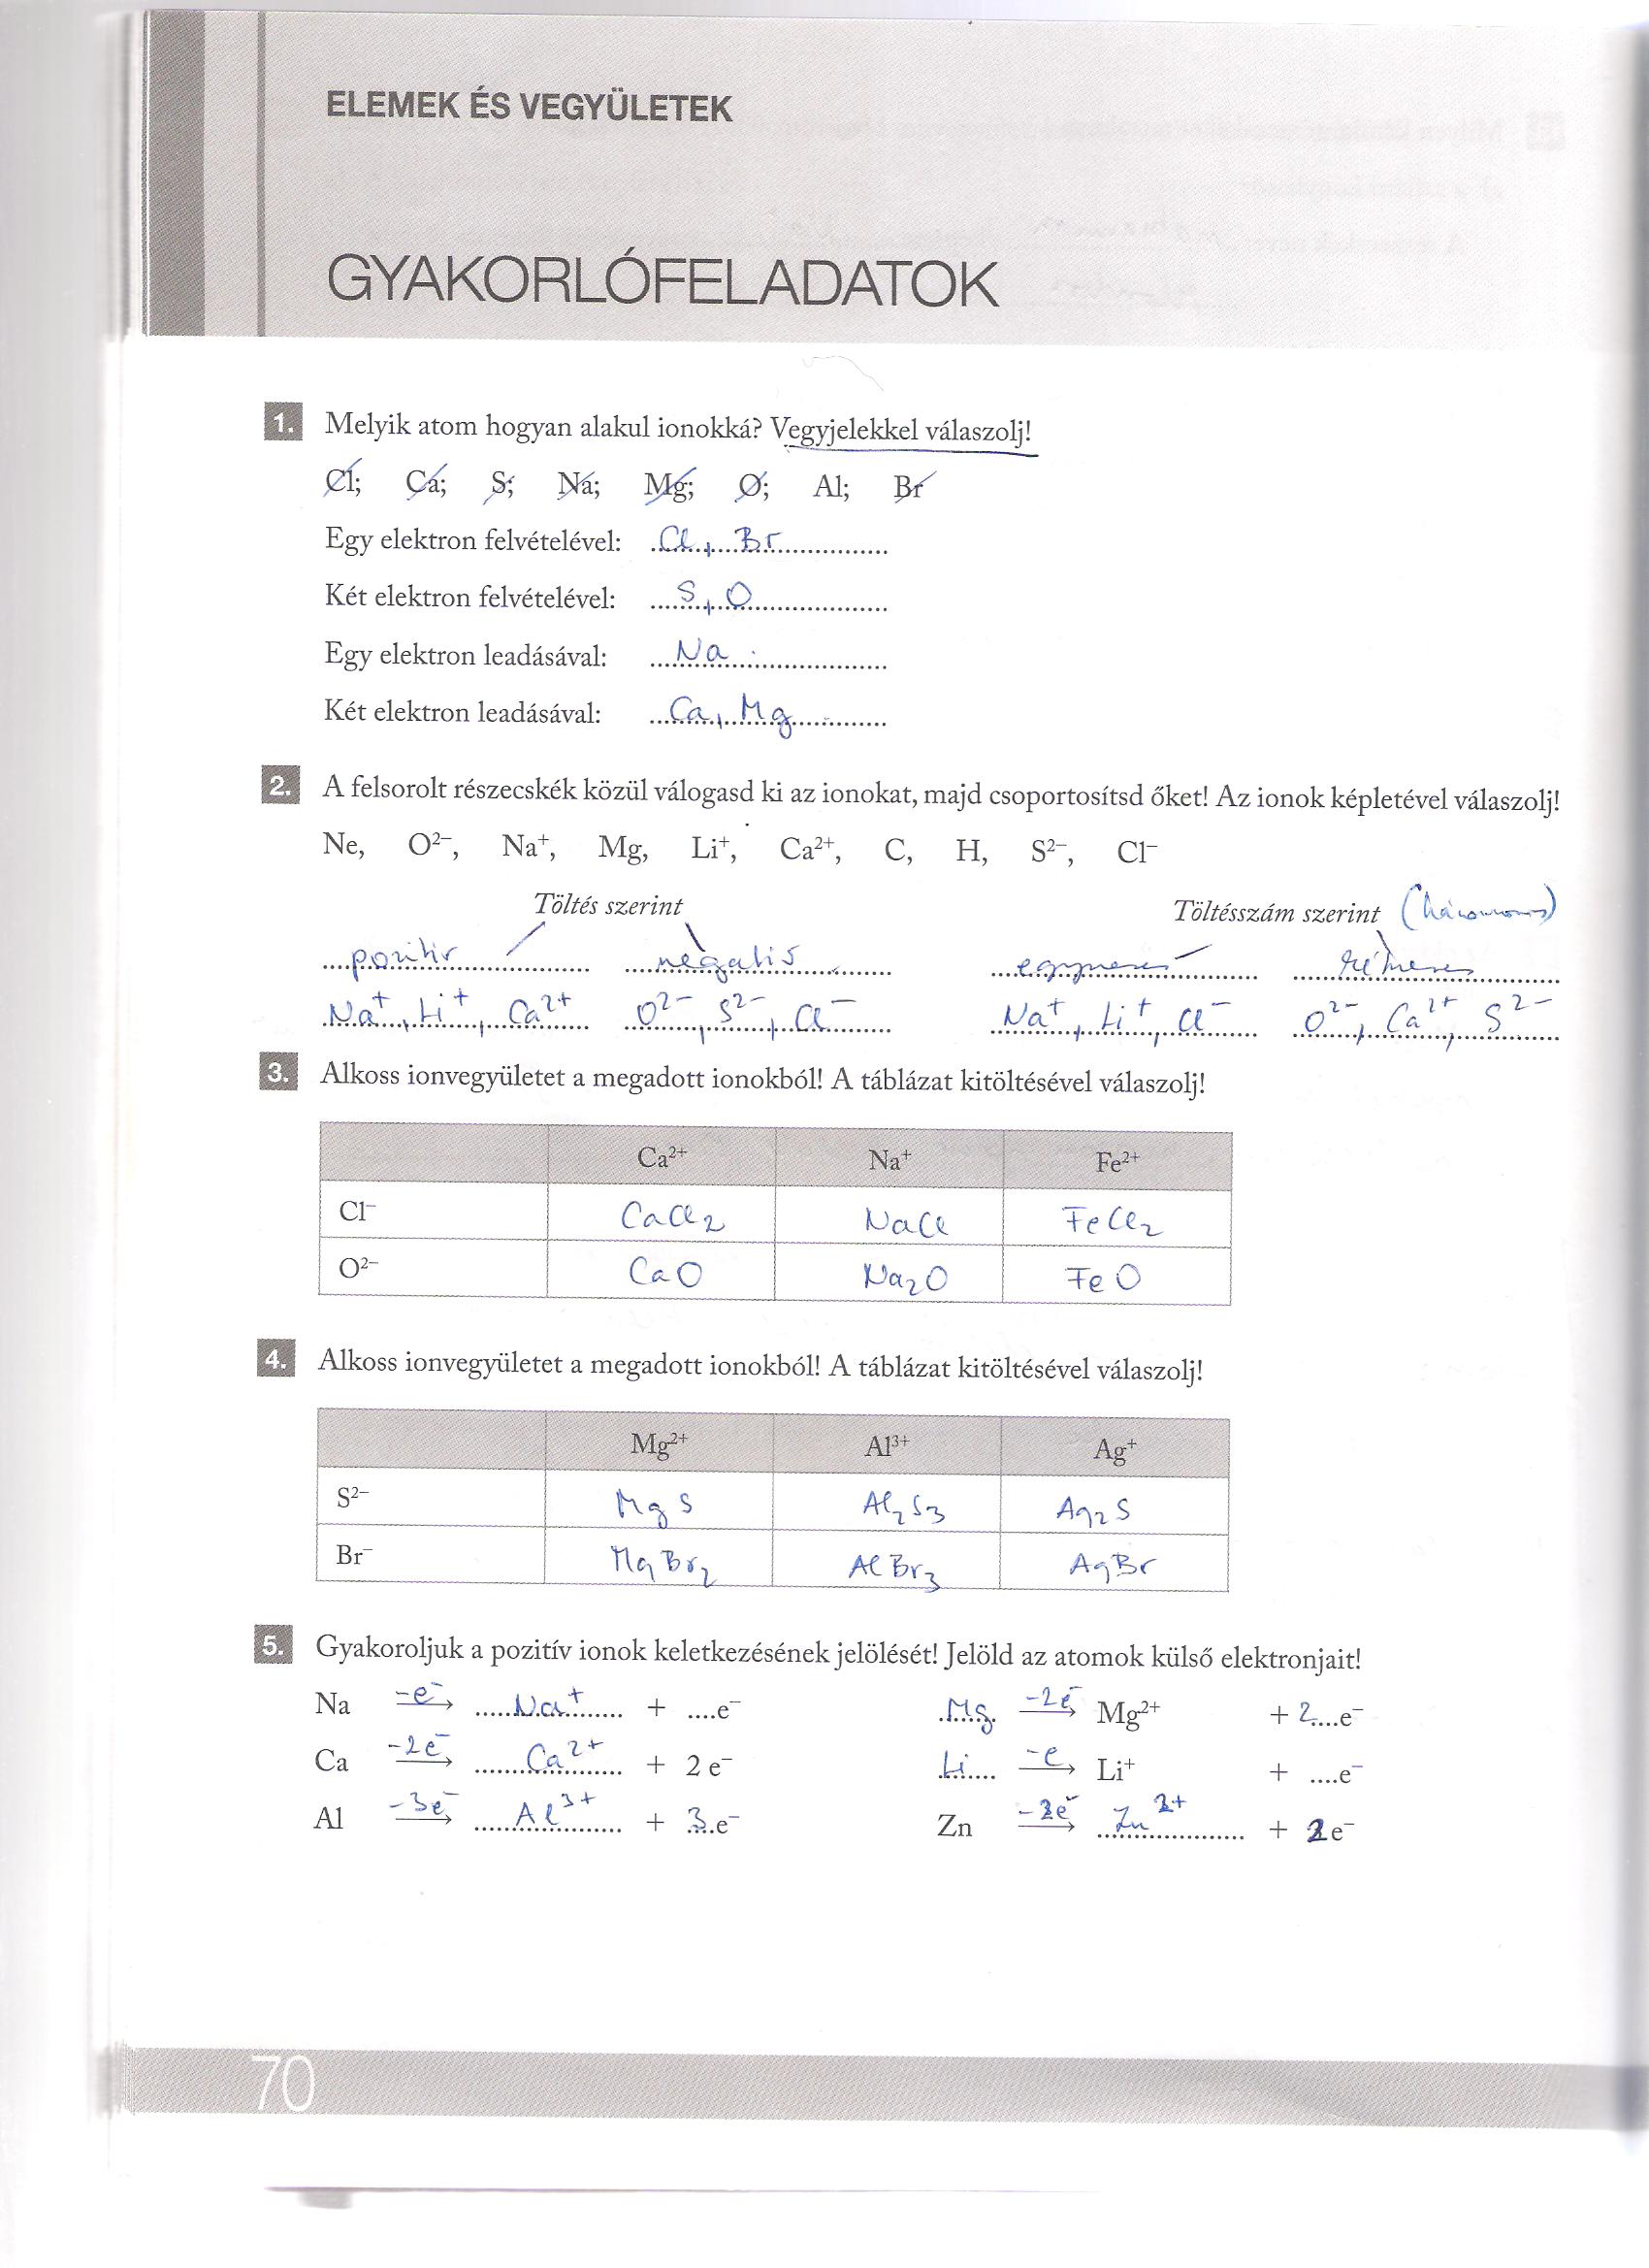 ELEMEK ÉS VEGYÜLETEK
GYAKORLÓFELADATOK
1. Melyik atom hogyan alakul ionokká? Vegyjelekkel válaszolj!
Cl; Ca; S; Na; Mg; O; Al; Br
Egy elektron felvételével: Cl, Br
Két elektron felvételével: S, O
Egy elektron leadásával: Na
Két elektron leadásával: Ca, Mg
2. A felsorolt részecskék közül válogasd ki az ionokat, majd csoportosítsd őket! Az ionok képletével válaszolj!
Ne, O²⁻, Na⁺, Mg, Li⁺, Ca²⁺, C, H, S²⁻, Cl⁻
Töltés szerint Töltésszám szerint
pozitív negatív egyszeres kétszeres
Na⁺, Li⁺, Ca²⁺ O²⁻, S²⁻, Cl⁻ Na⁺, Li⁺, Cl⁻ O²⁻, Ca²⁺, S²⁻
3. Alkoss ionvegyületet a megadott ionokból! A táblázat kitöltésével válaszolj!
Ca²⁺ Na⁺ Fe²⁺
Cl⁻ CaCl₂ NaCl FeCl₂
O²⁻ CaO Na₂O FeO
4. Alkoss ionvegyületet a megadott ionokból! A táblázat kitöltésével válaszolj!
Mg²⁺ Al³⁺ Ag⁺
S²⁻ MgS Al₂S₃ Ag₂S
Br⁻ MgBr₂ AlBr₃ AgBr
5. Gyakoroljuk a pozitív ionok keletkezésének jelölését! Jelöld az atomok külső elektronjait!
Na -e⁻→ Na⁺ + ....e⁻ Mg -2e⁻→ Mg²⁺ + 2....e⁻
Ca -2e⁻→ Ca²⁺ + 2 e⁻ Li -e→ Li⁺ + ....e⁻
Al -3e⁻→ Al³⁺ + 3 e⁻ Zn -2e⁻→ Zn²⁺ + 2e⁻
70